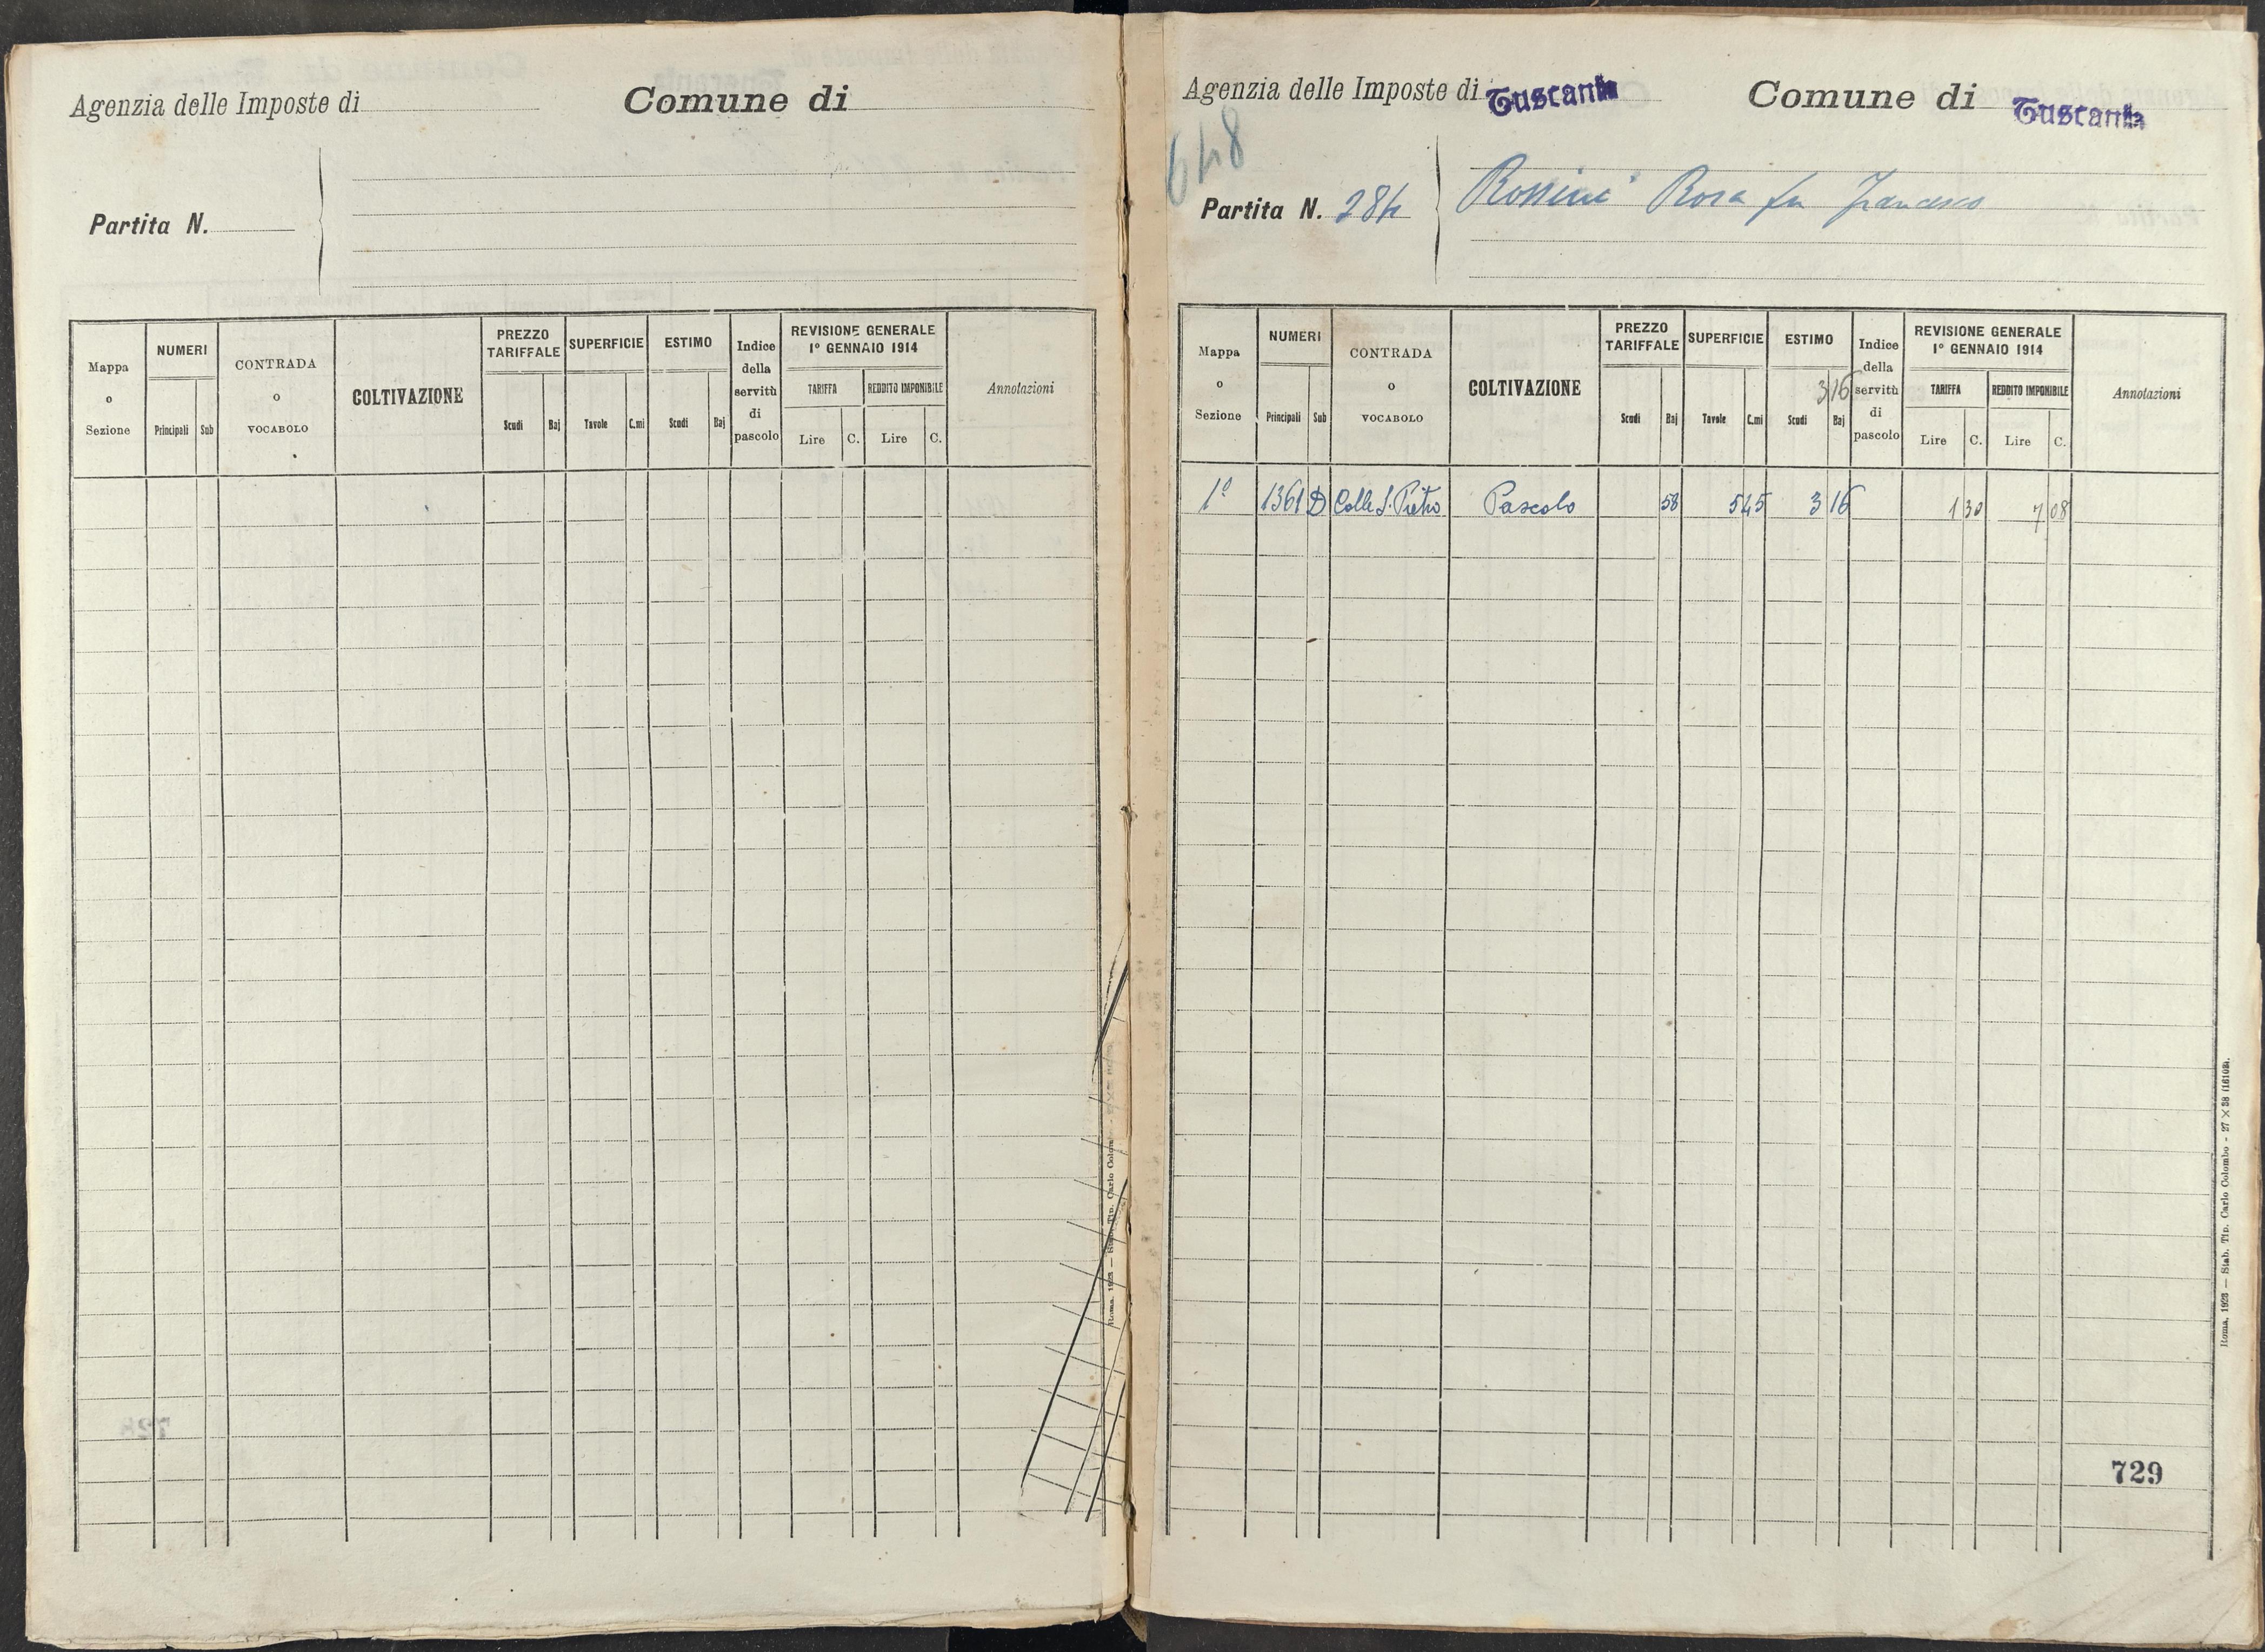 Agenzia delle Imposte di
Comune di
Partita N.
Mappa o Sezione
NUMERI
Principali Sub
CONTRADA o VOCABOLO
COLTIVAZIONE
PREZZO TARIFFALE
Scudi Baj
SUPERFICIE
Tavole C.mi
ESTIMO
Scudi Baj
Indice della servitù di pascolo
REVISIONE GENERALE
1º GENNAIO 1914
TARIFFA
Lire C.
REDDITO IMPONIBILE
Lire C.
Annotazioni
Agenzia delle Imposte di Tuscania
Comune di Tuscania
648
Partita N. 284
Rossini Rosa fu Francesco
Mappa o Sezione
NUMERI
Principali Sub
CONTRADA o VOCABOLO
COLTIVAZIONE
PREZZO TARIFFALE
Scudi Baj
SUPERFICIE
Tavole C.mi
ESTIMO
3 16
Scudi Baj
Indice della servitù di pascolo
REVISIONE GENERALE
1º GENNAIO 1914
TARIFFA
Lire C.
REDDITO IMPONIBILE
Lire C.
Annotazioni
1º 1361 D Colle S. Pietro Pascolo 58 5 45 3 16 1 30 7 08
729
Roma, 1923 — Stab. Tip. Carlo Colombo - 27 × 38 (1610).